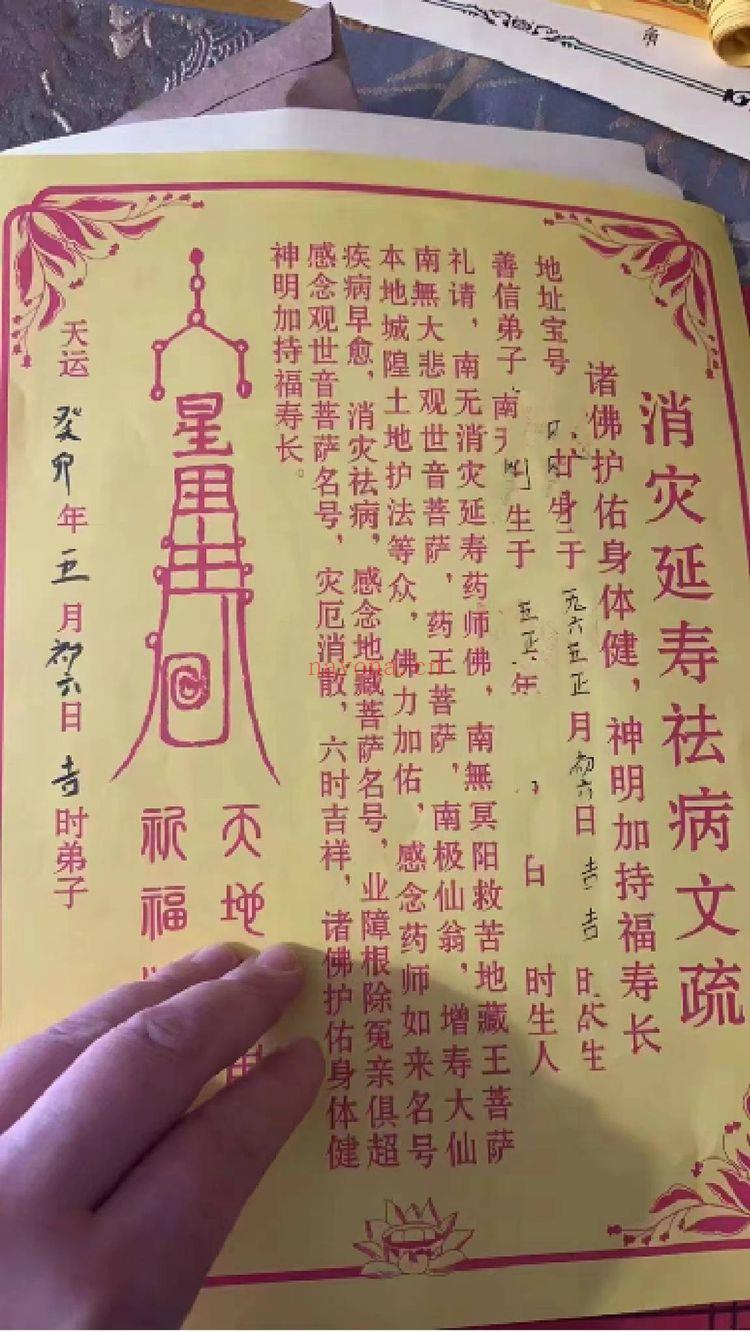 消灾延寿祛病文疏
诸佛护佑身体健，神明加持福寿长
地址宝号
生于一九六五年正月初六日吉时生
善信弟子 生于 年 日 时生人
礼请，南无消灾延寿药师佛，南無冥阳救苦地藏王菩萨
南無大悲观世音菩萨，药王菩萨，南极仙翁，增寿大仙
本地城隍土地护法等众，佛力加佑，感念药师如来名号
疾病早愈，消灾祛病，感念地藏菩萨名号，业障根除冤亲俱超
感念观世音菩萨名号，灾厄消散，六时吉祥，诸佛护佑身体健
神明加持福寿长。
天地
祈福
天运癸卯年五月初六日吉时弟子
nayona.cn